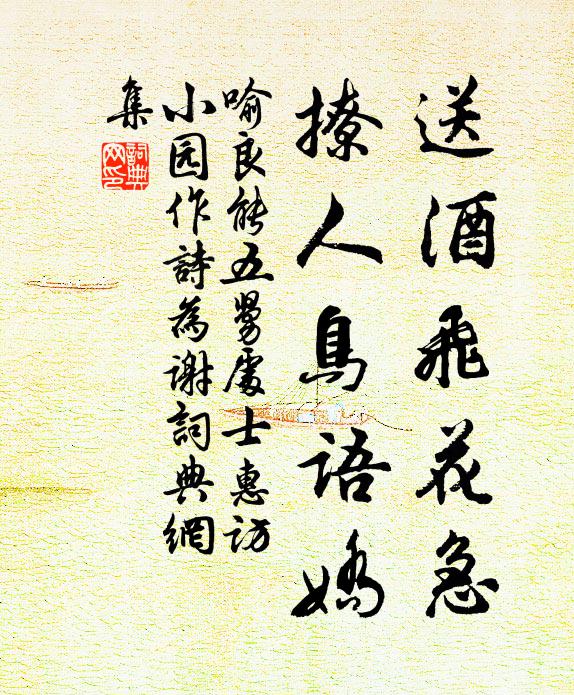 送酒飛花急
撩人鳥語嬌
喻良能五舅處士惠访
小园作詩為谢詞典網
集
詞典網印